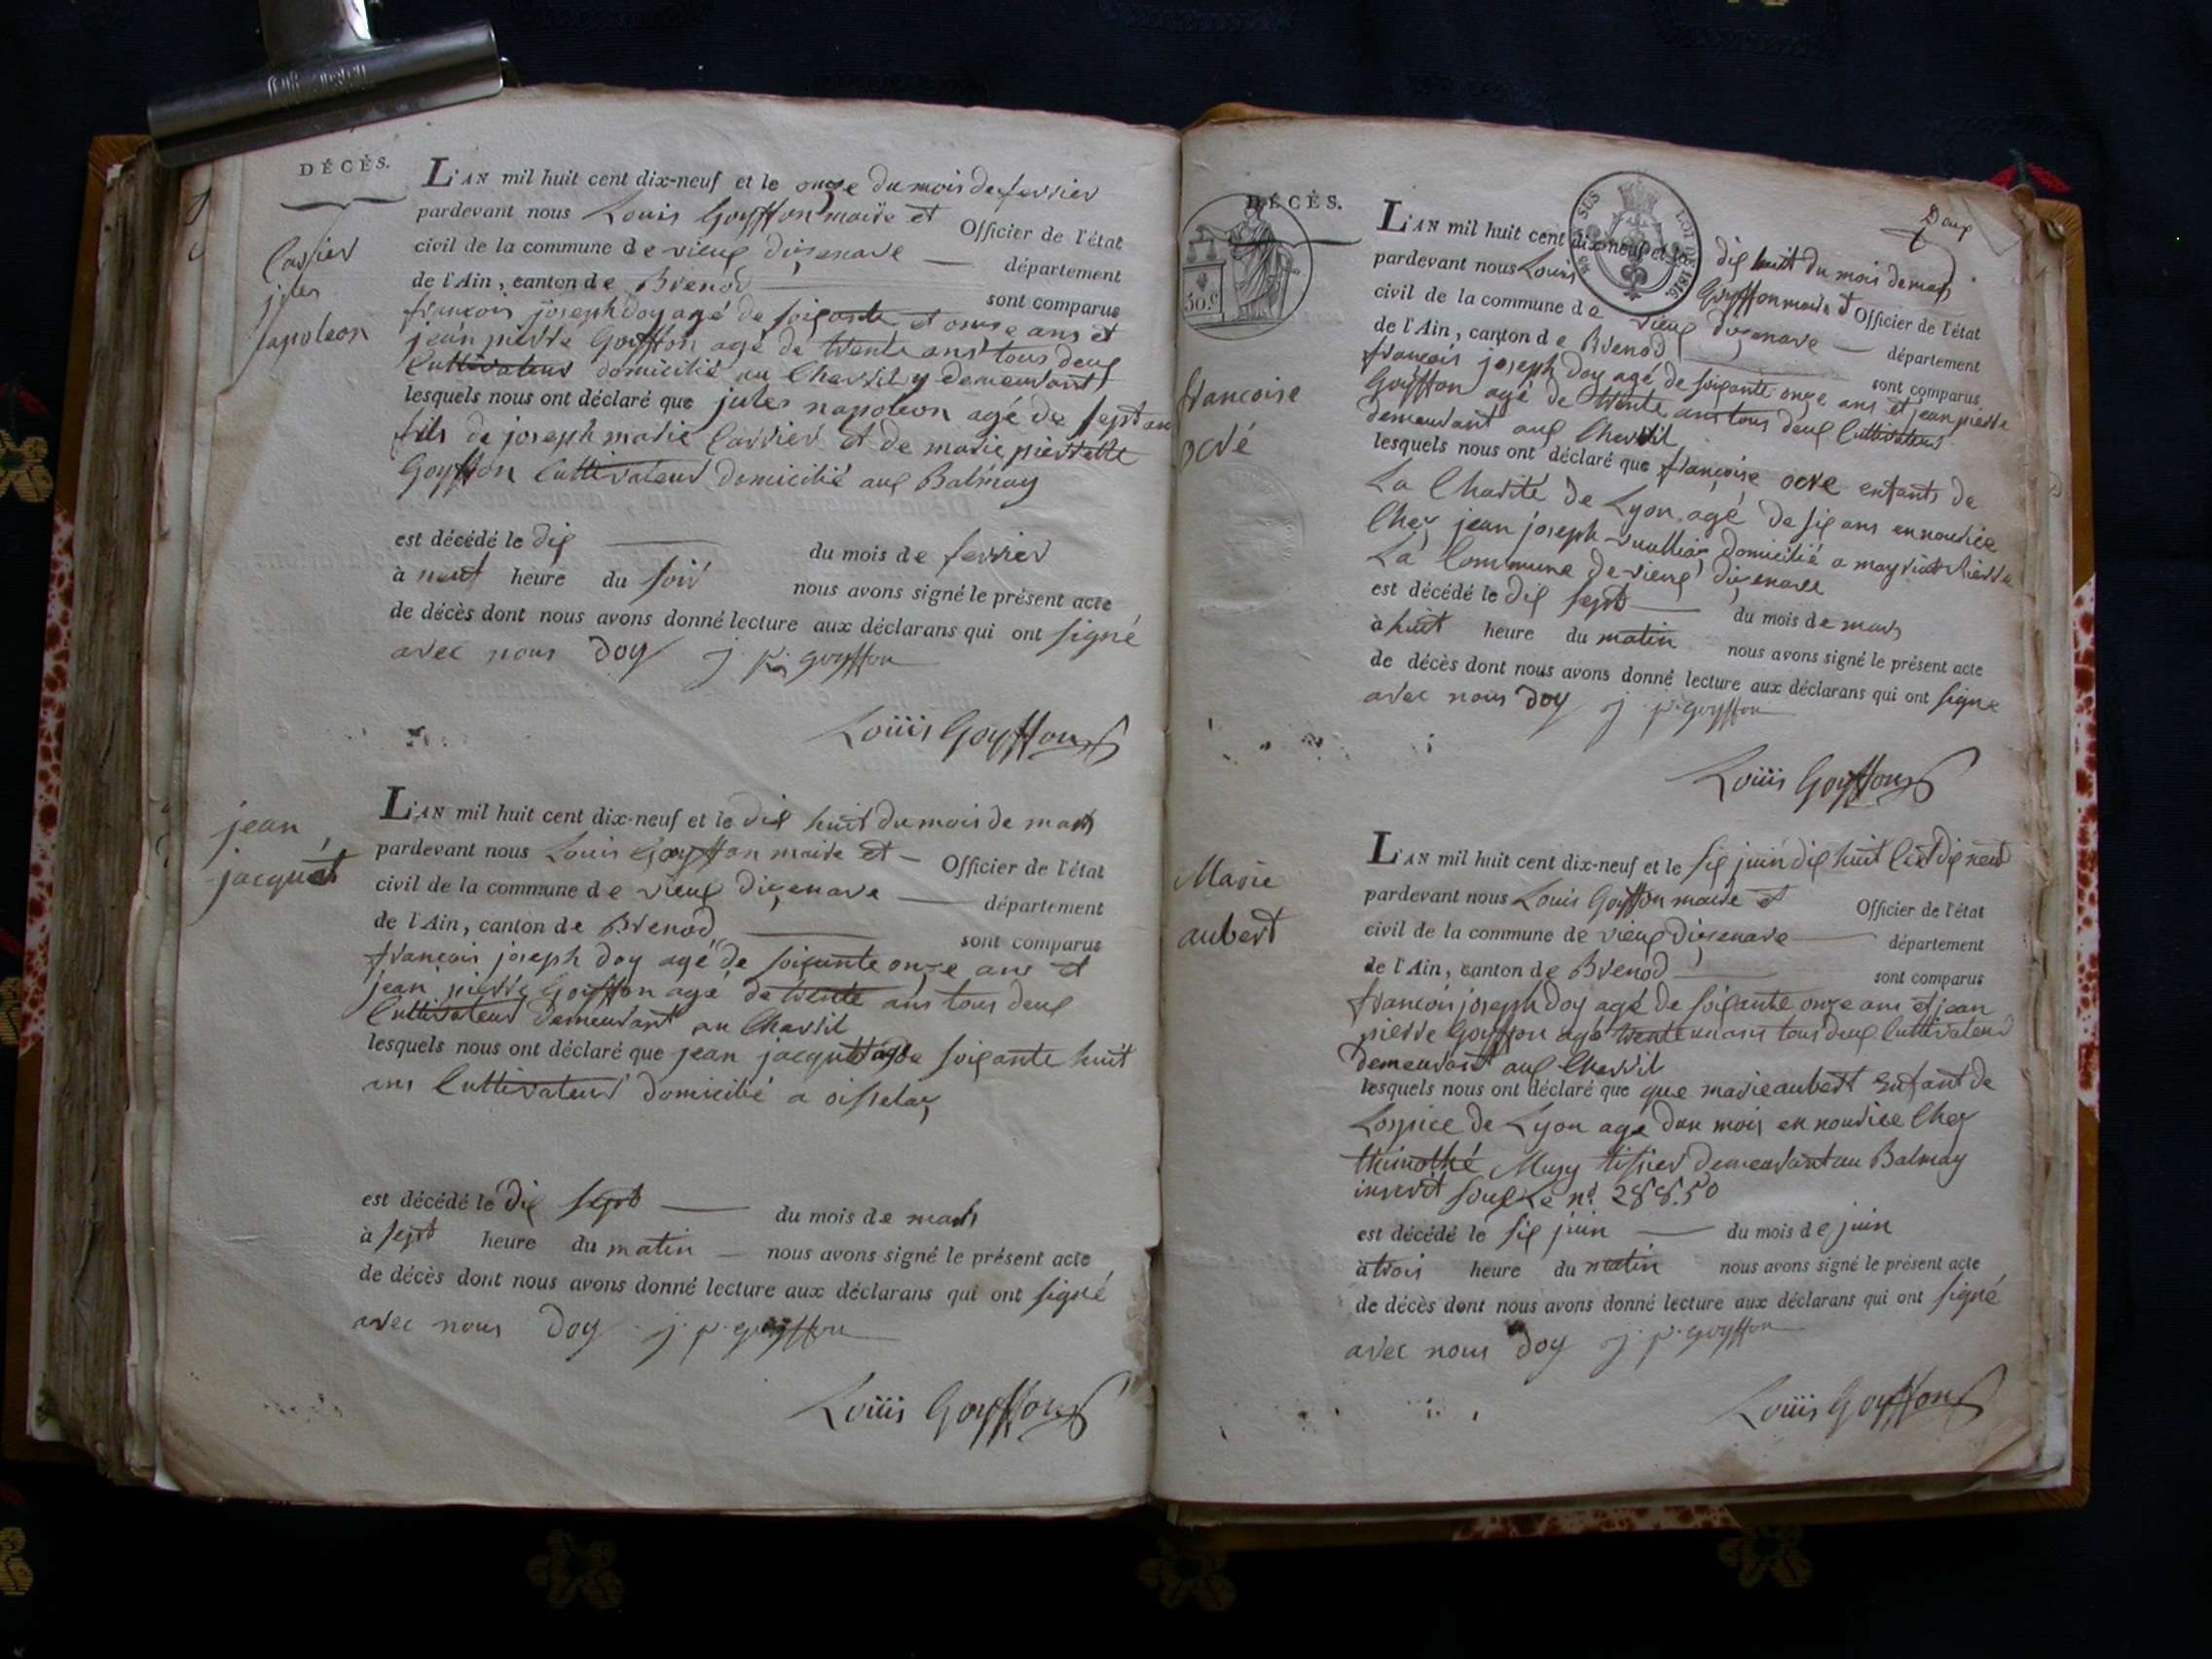 DÉCÈS.
Carrier
jules
napoleon
L'AN mil huit cent dix-neuf et le onze du mois de fevrier
pardevant nous Louis Goyffon maire et Officier de l'état
civil de la commune de vieux dizenave département
de l'Ain, canton de Brenod sont comparus
francois joseph doy agé de soixante et onze ans et
jean pierre Goyffon agé de trente ans tous deux
Cultivateur domicilié au Chevril y demeurant
lesquels nous ont déclaré que jules napoleon agé de sept an
fils de joseph marie Carrier et de marie pierrette
Goyffon Cultivateur domicilié aux Balmay
est décédé le dix du mois de fevrier
à neuf heure du soir nous avons signé le présent acte
de décès dont nous avons donné lecture aux déclarans qui ont signé
avec nous doy j. p. goyffon
Loüis Goyffon
jean
jacquet
L'AN mil huit cent dix-neuf et le dix huit du mois de mars
pardevant nous Louis Goyffon maire et Officier de l'état
civil de la commune de vieux dizenave département
de l'Ain, canton de Brenod sont comparus
francois joseph doy agé de soixante onze ans et
jean pierre Goyffon agé de trente ans tous deux
Cultivateur demeurant au Chevril
lesquels nous ont déclaré que jean jacquet agé de soixante huit
ans Cultivateur domicilié a oisselaz
est décédé le dix sept du mois de mars
à sept heure du matin nous avons signé le présent acte
de décès dont nous avons donné lecture aux déclarans qui ont signé
avec nous doy j. p. goyffon
Loüis Goyffon
DÉCÈS.
30.c
SUS
LOI DE 1816.
Doux
francoise
ocré
L'AN mil huit cent dix-neuf et le dix huit du mois de mars
pardevant nous Louis Goyffon maire et Officier de l'état
civil de la commune de vieux dizenave département
de l'Ain, canton de Brenod sont comparus
francois joseph doy agé de soixante onze ans et jean pierre
Goyffon agé de trente ans tous deux Cultivateur
demeurant aux Chevril
lesquels nous ont déclaré que françoise ocre enfants de
La Charité de Lyon agé de six ans en nourice
Chez jean joseph domicilié a mayriat
La Commune de vieux dizenave
est décédé le dix sept du mois de mars
à huit heure du matin nous avons signé le présent acte
de décès dont nous avons donné lecture aux déclarans qui ont signe
avec nous doy j. p. goyffon
Loüis Goyffon
Marie
aubert
L'AN mil huit cent dix-neuf et le six juin dix huit Cent dix neuf
pardevant nous Louis Goyffon maire et Officier de l'état
civil de la commune de vieux dizenave département
de l'Ain, canton de Brenod sont comparus
francois joseph doy agé de soixante onze ans et jean
pierre Goyffon agé trente un ans tous deux Cultivateur
demeurant aux Chevril
lesquels nous ont déclaré que que marie aubert Enfant de
Lospice de Lyon age dun mois en nourice Chez
thimothé Mugy tissier demeurant au Balmay
inscrit soux Le no. 28850
est décédé le six juin du mois de juin
à trois heure du matin nous avons signé le présent acte
de décès dont nous avons donné lecture aux déclarans qui ont signé
avec nous doy j. p. goyffon
Loüis Goyffon